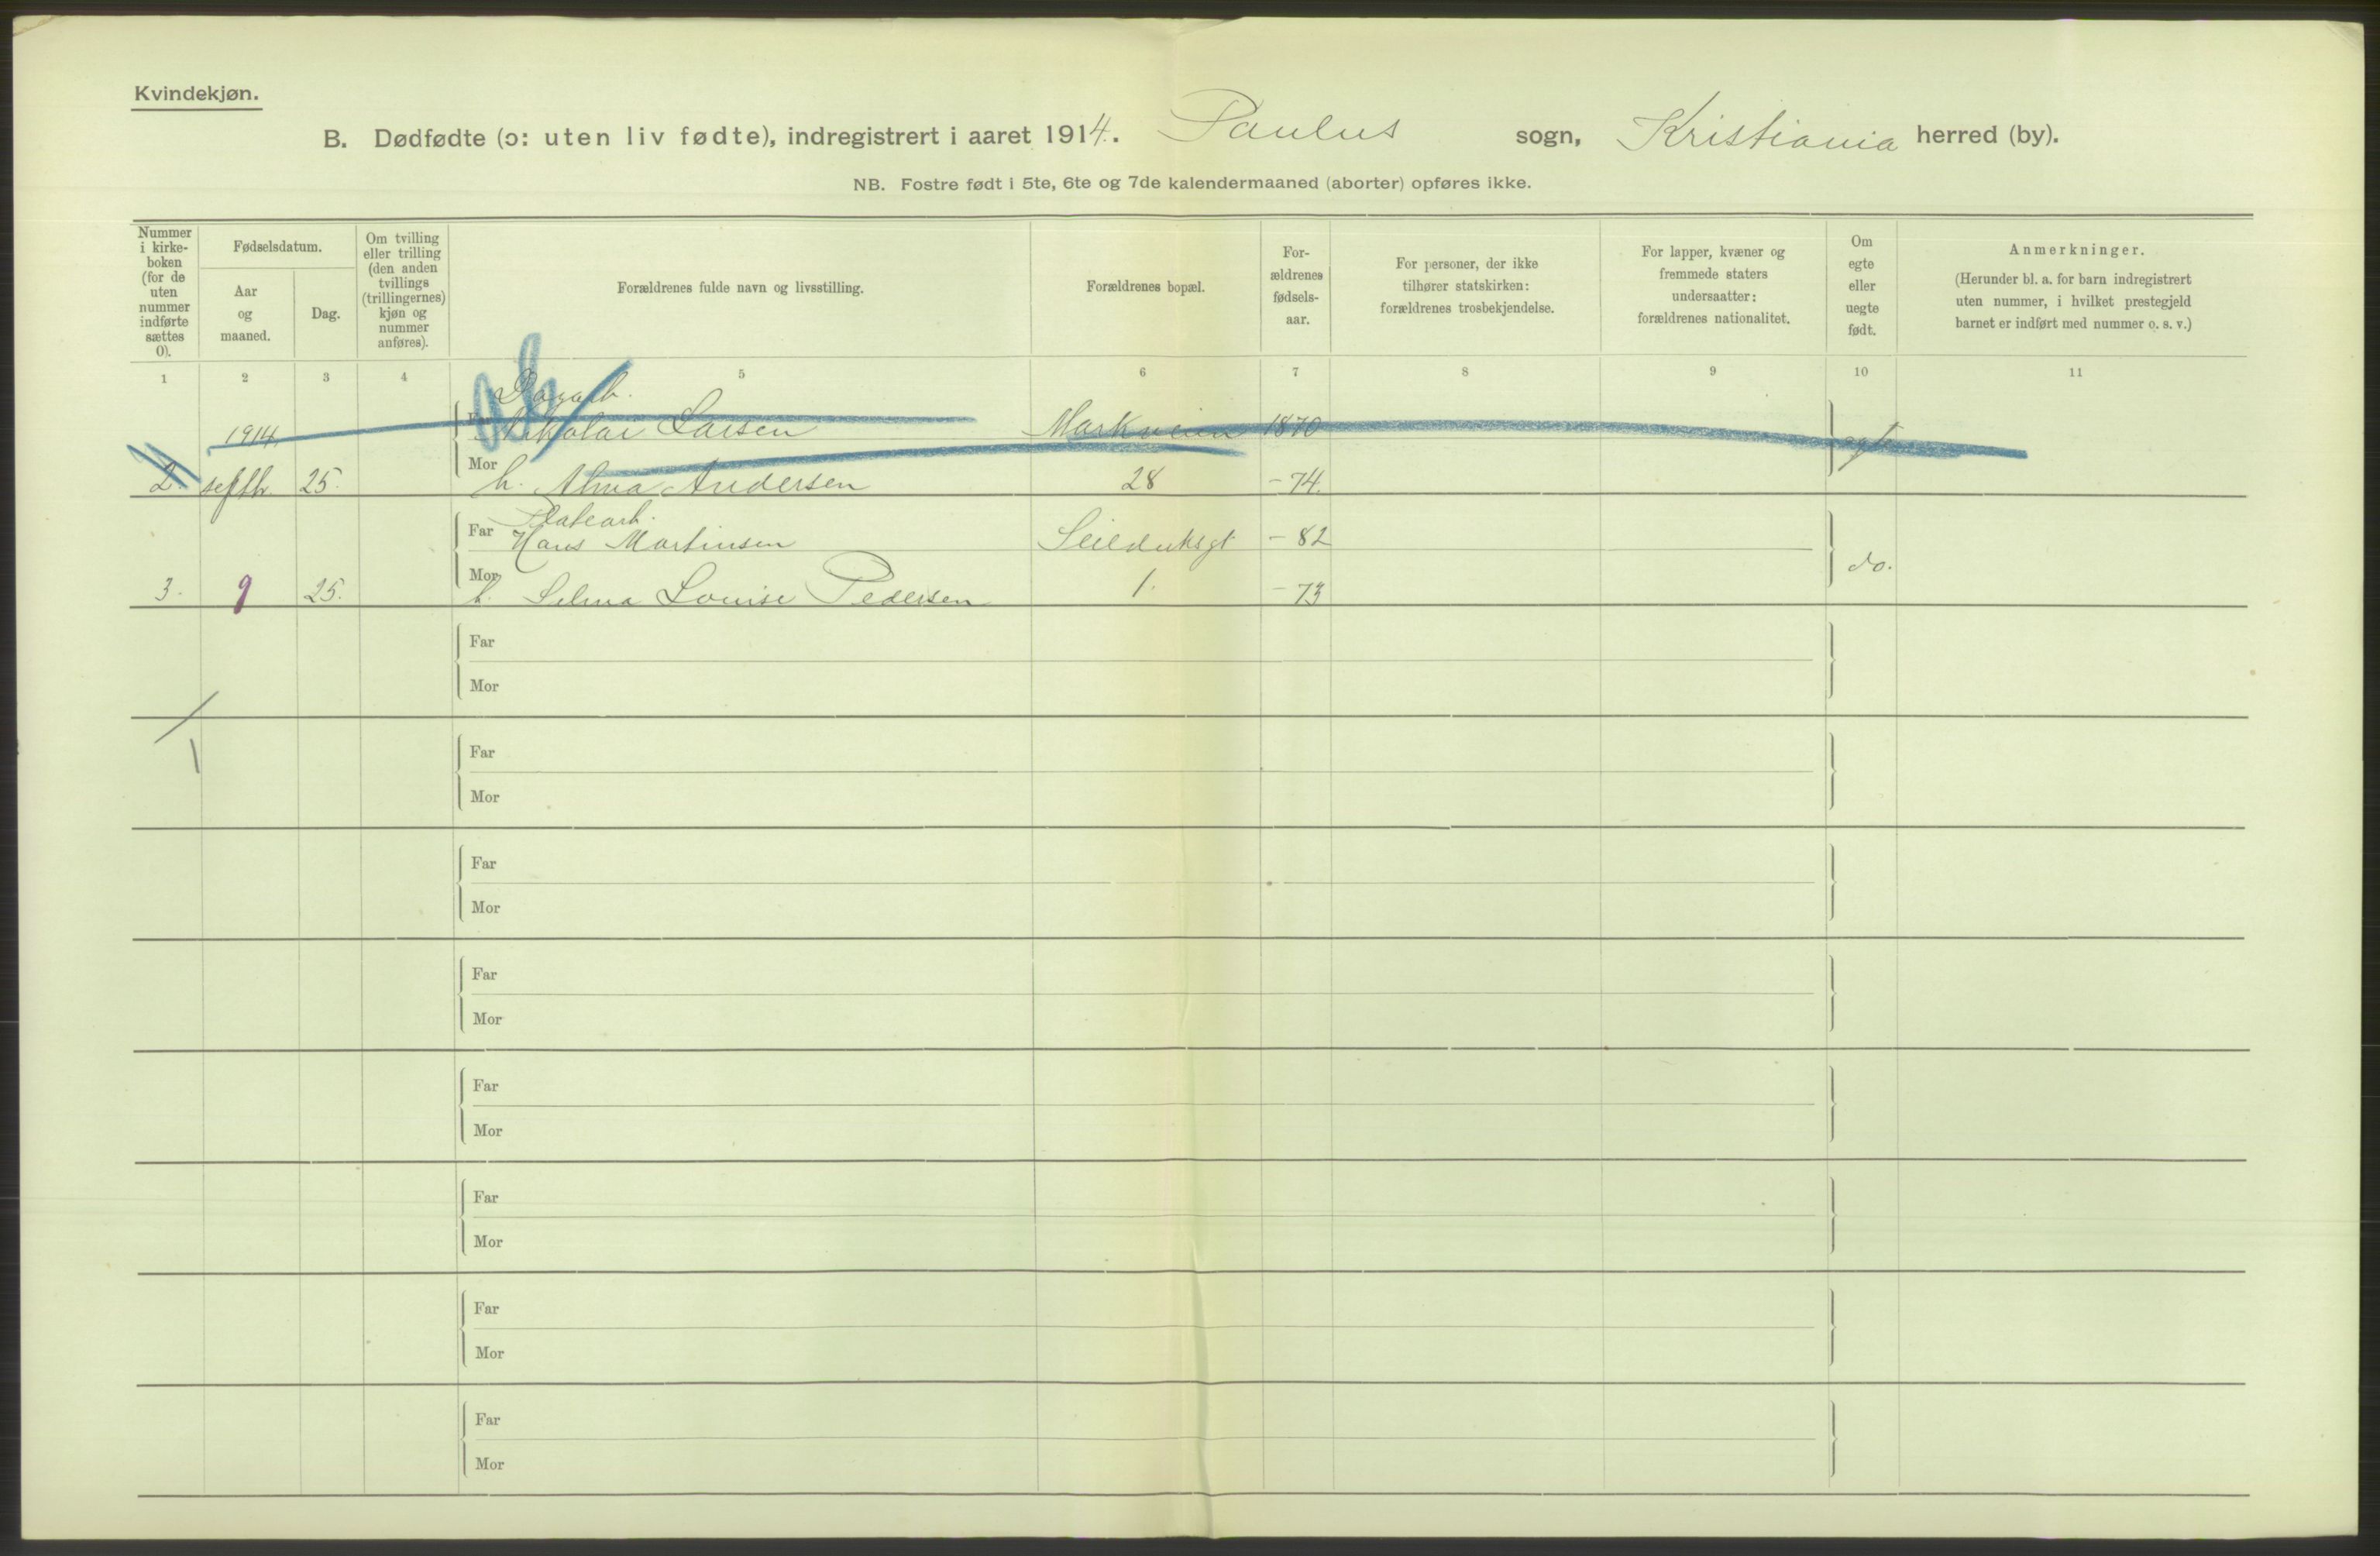 Kvindekjøn.
B. Dødfødte (ɔ: uten liv fødte), indregistrert i aaret 1914. Paulus sogn, Kristiania herred (by).
NB. Fostre født i 5te, 6te og 7de kalendermaaned (aborter) opføres ikke.
Nummer
i kirke-
boken
(for de
uten
nummer
indførte
sættes
0).
Fødselsdatum.
Aar
og
maaned.
Dag.
Om tvilling
eller trilling
(den anden
tvillings
(trillingernes)
kjøn og
nummer
anføres).
Forældrenes fulde navn og livsstilling.
Forældrenes bopæl.
For-
ældrenes
fødsels-
aar.
For personer, der ikke
tilhører statskirken:
forældrenes trosbekjendelse.
For lapper, kvæner og
fremmede staters
undersaatter:
forældrenes nationalitet.
Om
egte
eller
uegte
født.
Anmerkninger.
(Herunder bl. a. for barn indregistrert
uten nummer, i hvilket prestegjeld
barnet er indført med nummer o. s. v.)
1 2 3 4 5 6 7 8 9 10 11
Dagarb.
1914 Far Nikolai Larsen Markveien 1870 egte
2. septb. 25. Mor h. Alma Andersen 28 - 74.
Far Hans Martinsen Seilduksgt - 82
do.
3. 9 25. Mor h. Selma Louise Pedersen 1. - 73
Far
Mor
Far
Mor
Far
Mor
Far
Mor
Far
Mor
Far
Mor
Far
Mor
Far
Mor